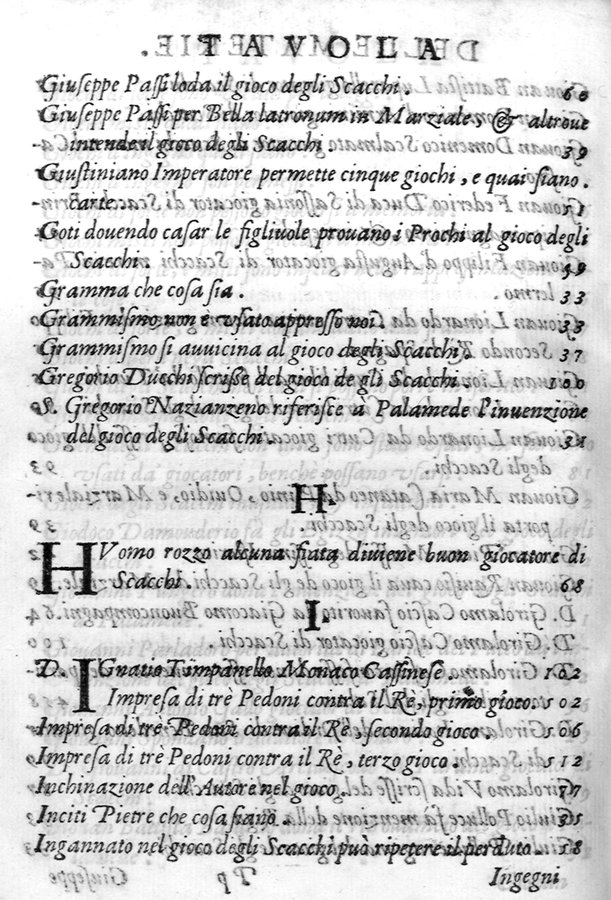 T A V O L A
Giuseppe Passi loda il gioco degli Scacchi. 60
Giuseppe Passi per Bella latronum in Marziale, & altroue
intende il gioco degli Scacchi 39
Giustiniano Imperatore permette cinque giochi, e quai siano.
carte.
Goti douendo casar le figliuole prouano i Prochi al gioco degli
Scacchi. 49
Gramma che cosa sia. 33
Grammismo non è vsato appresso noi. 33
Grammismo si auuicina al gioco degli Scacchi. 37
Gregorio Ducchi scrisse del gioco de gli Scacchi. 100
S. Gregorio Nazianzeno riferisce à Palamede l'inuenzione
del gioco degli Scacchi.
H
HVomo rozzo alcuna fiata diuiene buon giocatore di
Scacchi. 68
I
D. IGnatio Timpanello Monaco Cassinese. 182
Impresa di trè Pedoni contra il Rè, primo gioco. 502
Impresa di trè Pedoni contra il Rè, secondo gioco. 506
Impresa di trè Pedoni contra il Rè, terzo gioco. 512
Inchinazione dell'Autore nel gioco. 57
Inciti Pietre che cosa siano. 35
Ingannato nel gioco degli Scacchi può ripetere il perduto. 58
Ingegni